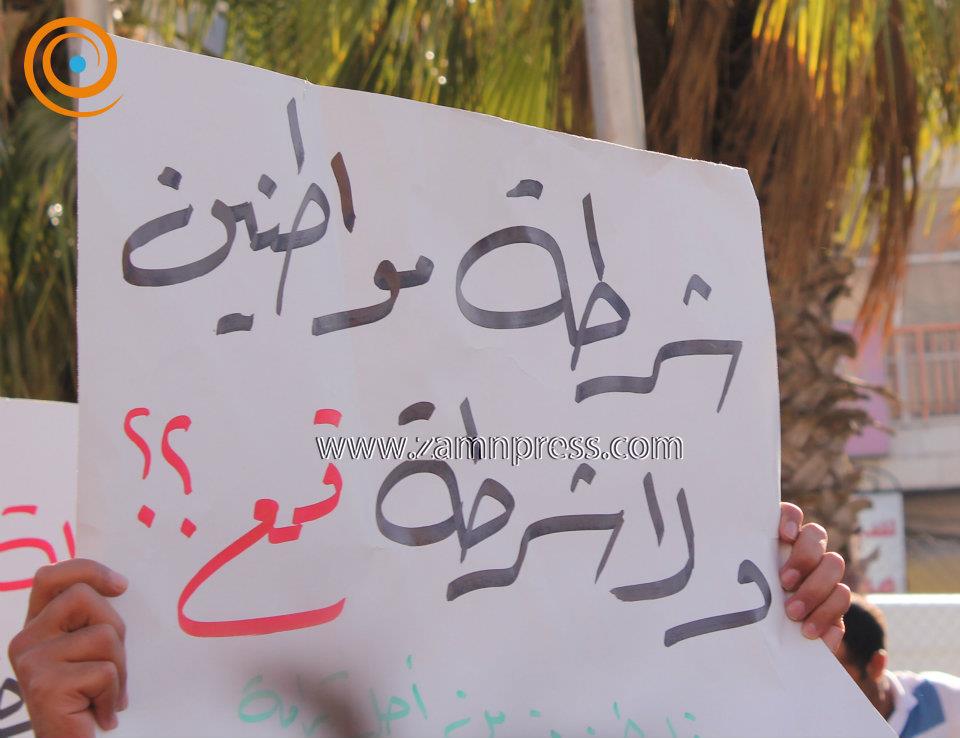 شرطة مواطنين
ولا شرطة قمع ؟؟
www.zamnpress.com
من أجل